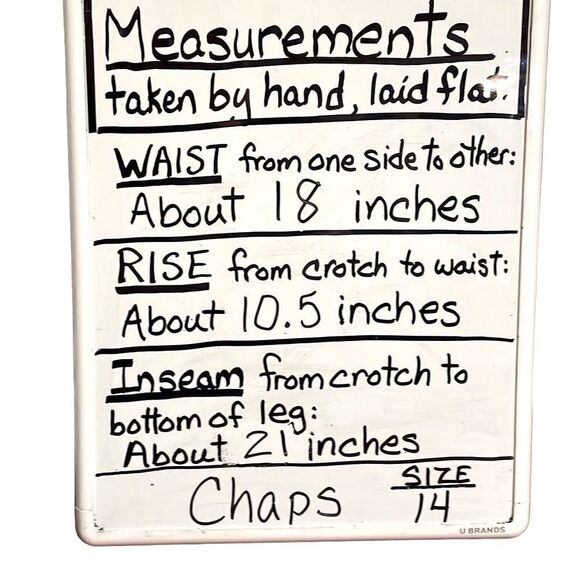 Measurements
taken by hand, laid flat.
WAIST from one side to other:
About 18 inches
RISE from crotch to waist:
About 10.5 inches
Inseam from crotch to
bottom of leg:
About 21 inches
Chaps SIZE 14
U BRANDS